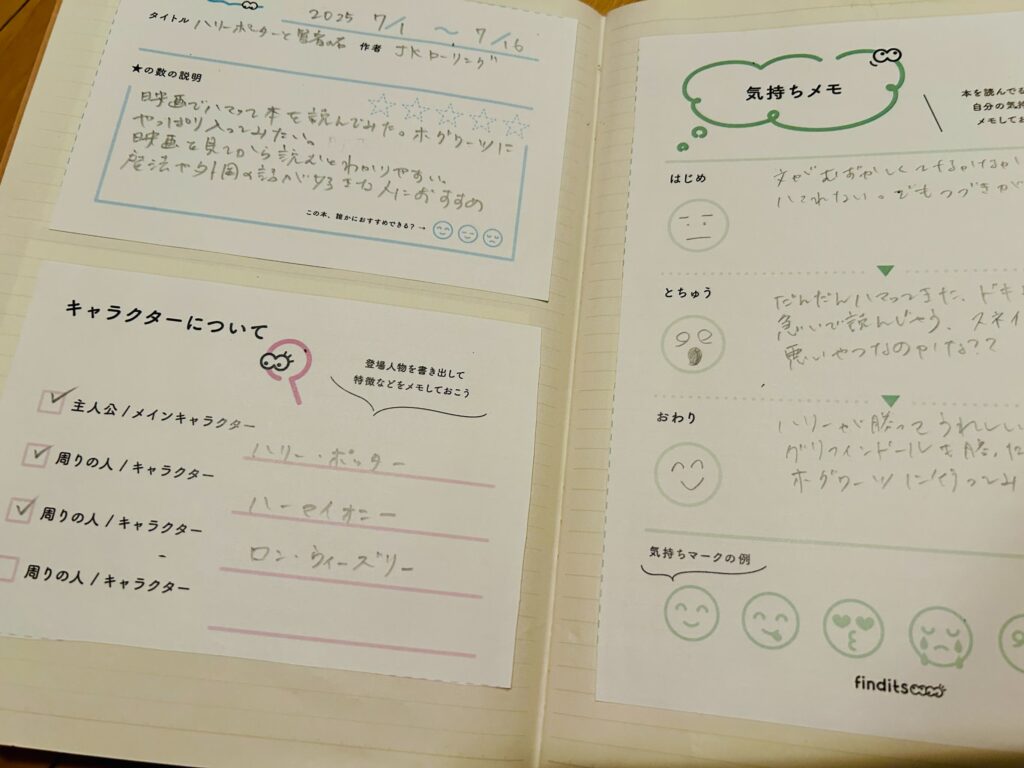 2025 7/1 ～ 7/16
タイトル ハリーポッターと賢者の石 作者 JKローリング
★の数の説明
映画でハマって本を読んでみた。ホグワーツに
やっぱり入ってみたい。
映画を見てから読むとわかりやすい。
魔法や外国の話が好きな人におすすめ
この本、誰かにおすすめできる？→
キャラクターについて
登場人物を書き出して
特徴などをメモしておこう
主人公 / メインキャラクター
ハリー・ポッター
周りの人 / キャラクター
ハーマイオニー
周りの人 / キャラクター
ロン・ウィーズリー
周りの人 / キャラクター
気持ちメモ
本を読んでる
自分の気持
メモしてお
はじめ
文がむずかしくて
入れない。でもつづきが
とちゅう
だんだんハマってきた、ドキ
急いで読んじゃう、スネイ
悪いやつなのかな？？
おわり
ハリーが勝ってうれしい
グリフィンドールも勝った
ホグワーツに行ってみ
気持ちマークの例
findits